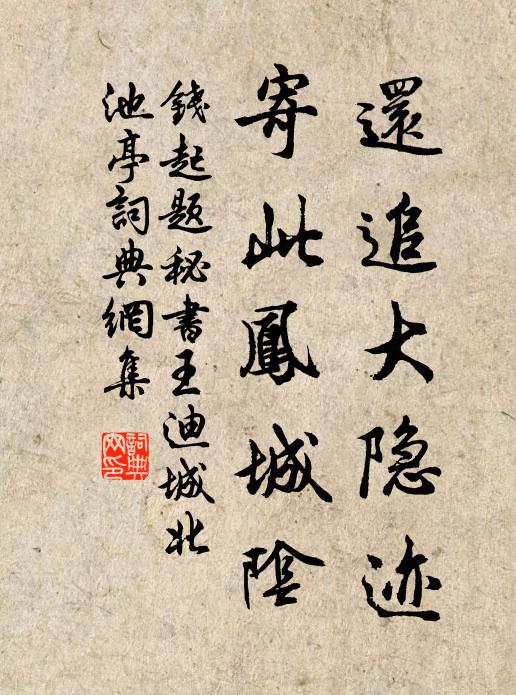 還追大隐迹
寄此鳳城陰
錢起题秘書王迪城北
池亭詞典網集
詞典网印